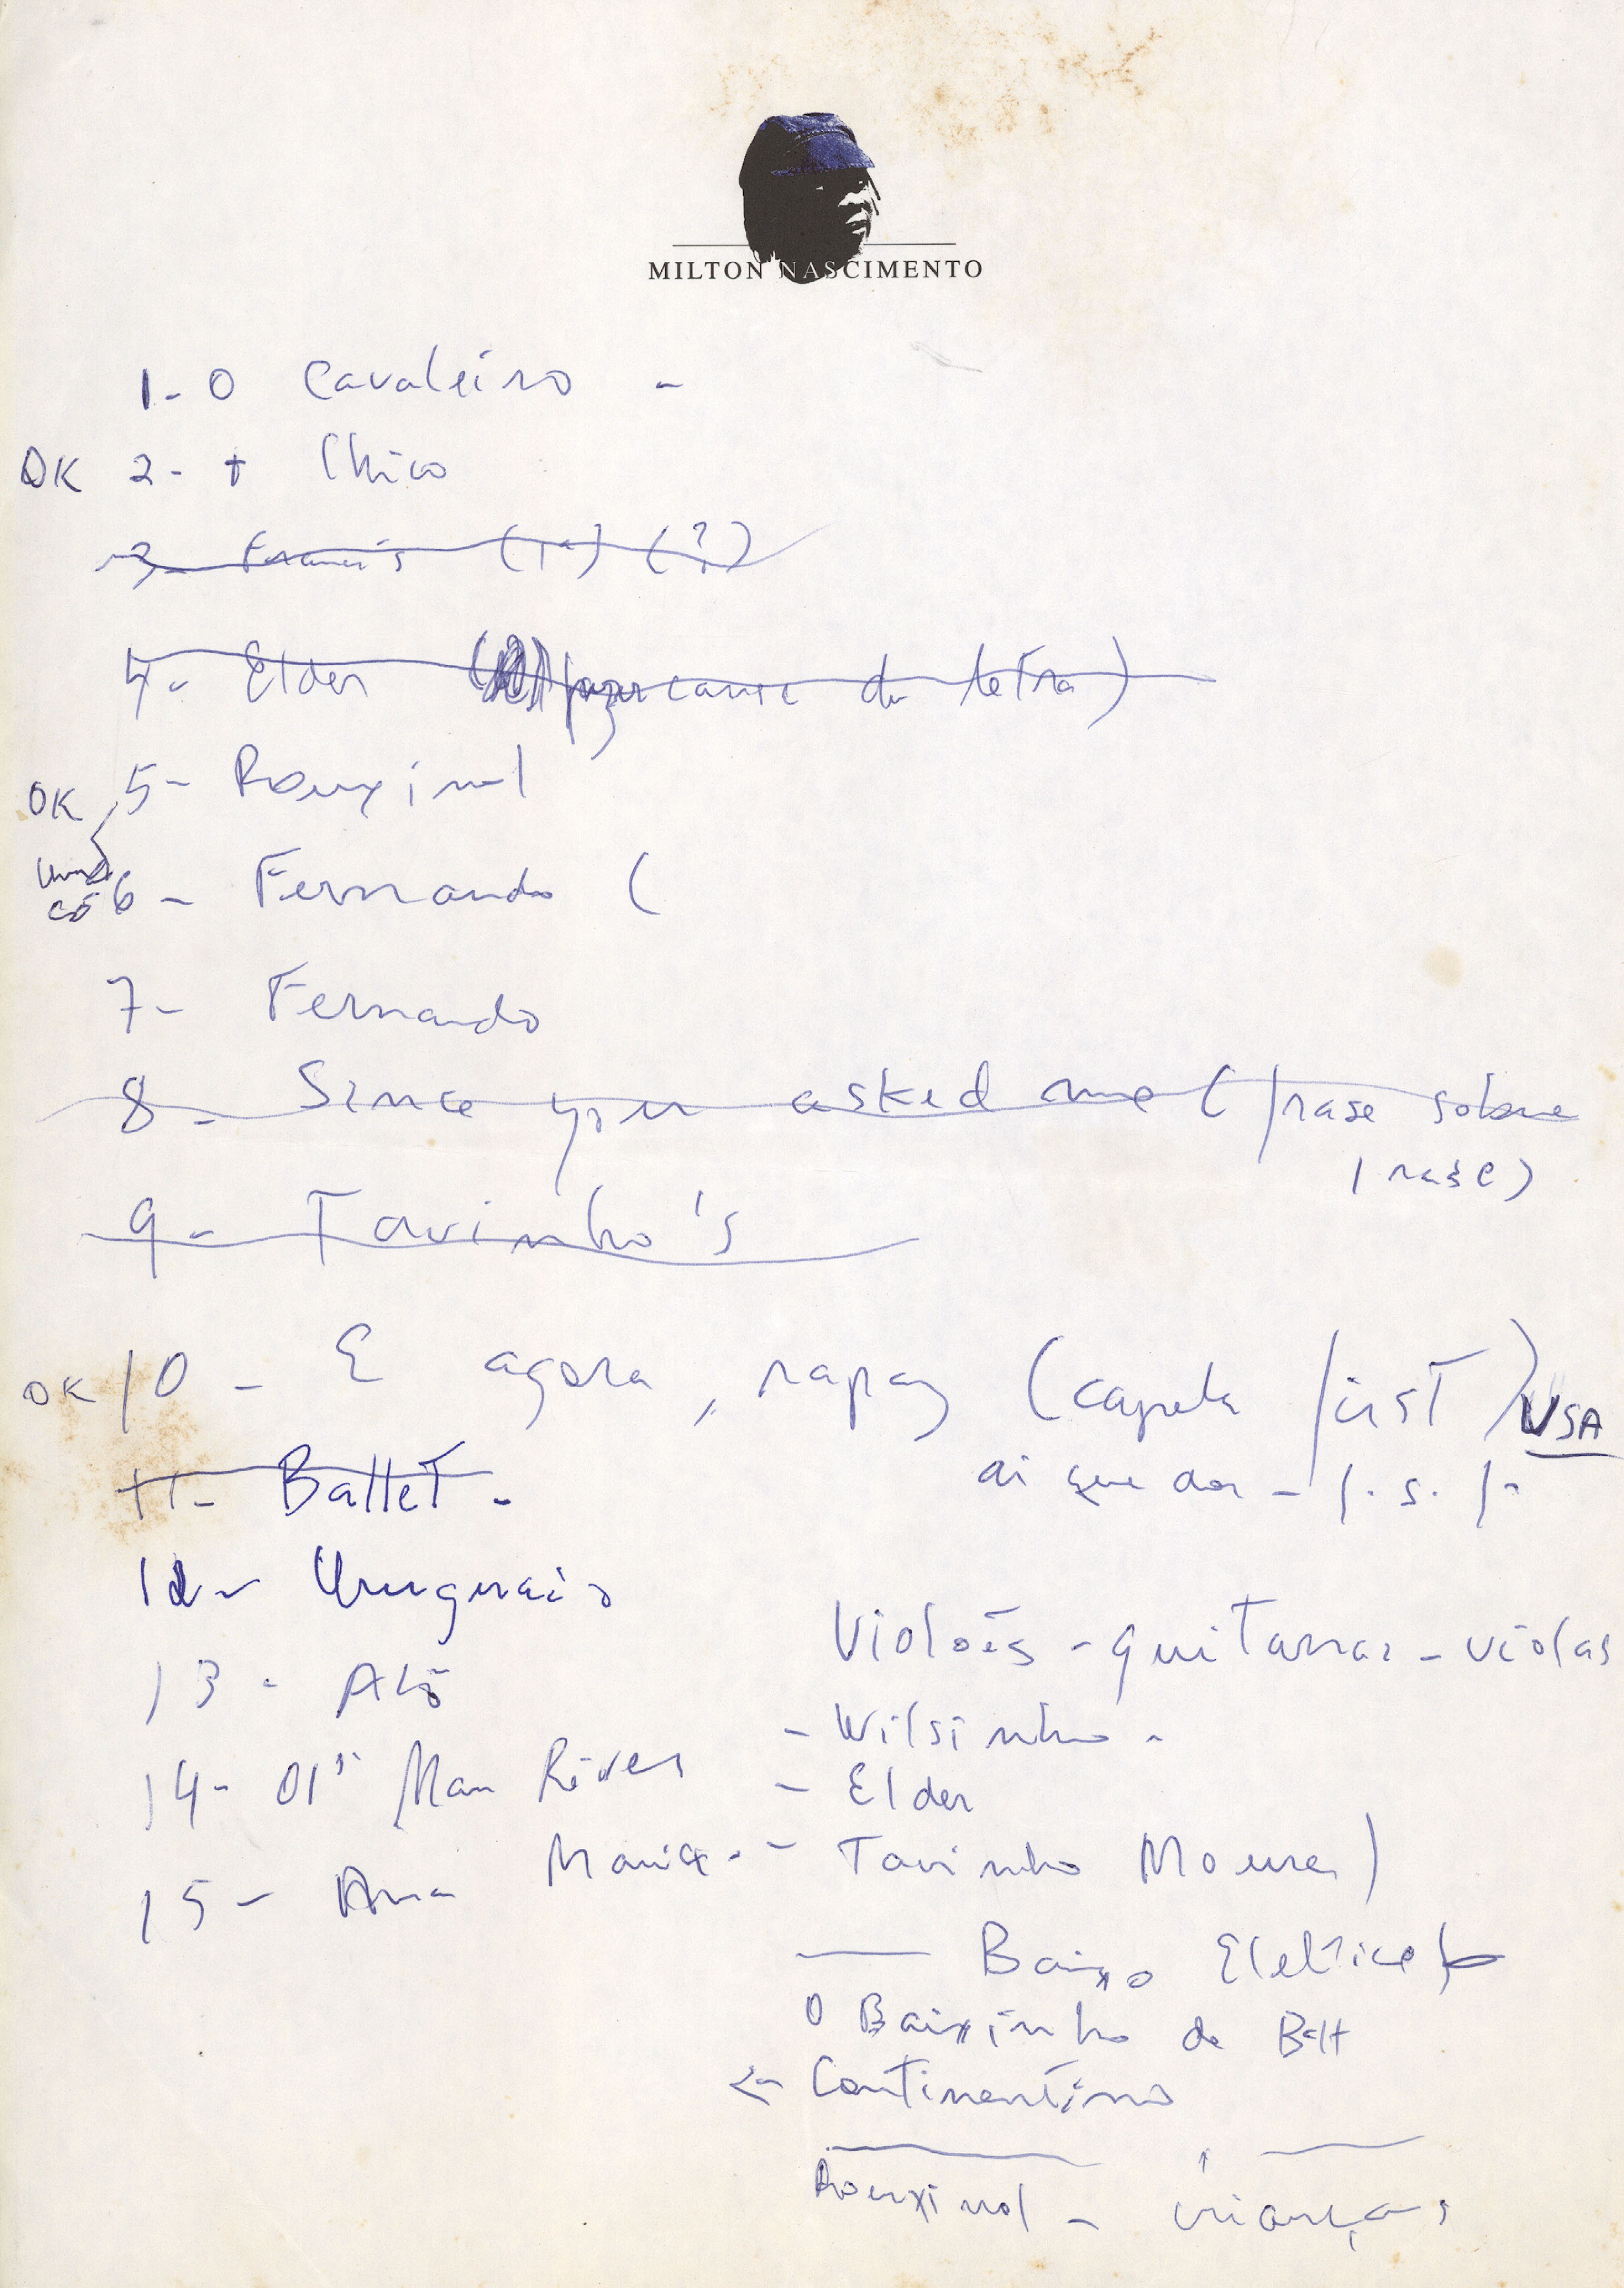 MILTON NASCIMENTO
1- O Cavaleiro -
OK 2- + Chico
3- Francis (1ª) (?)
4- Elder ( da letra)
OK 5- Rouxinol
6- Fernando (
7- Fernando
8- Since you asked me (frase sobre
frase)
9- Tavinho's
OK 10- E agora, rapaz (capela first) USA
ai que dor - f. s. f.
11- Ballet -
12- Uruguaio
13- Alô
14- Ol' Man River
15- Ana Maria -
Violões - guitarras - violas
- Wilsinho -
- Elder
- Tavinho Moura)
Baixo Eletrico
O Baixinho de BH
Continentino
Rouxinol - crianças